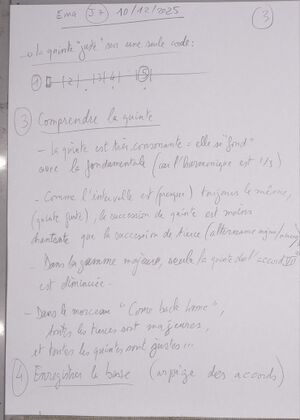 Ema (J7) 10/12/2025
3
→ la quinte "juste" sur une seule corde :
1 | 2 | | 3 | 4 | | 5 |
3 Comprendre la quinte
- La quinte est très consonante = elle se "fond"
avec la fondamentale (car l'harmonique est 1/3)
- Comme l'intervalle est (presque) toujours le même,
(quinte juste), la succession de quinte est moins
chantante que la succession de tierce (alternance majeur/mineur)
- Dans la gamme majeure, seule la quinte de l'accord VII
est diminuée.
- Dans le morceau "Come back home",
toutes les tierces sont majeures,
et toutes les quintes sont justes !!!
4 Enregistrer la basse (arpège des accords)